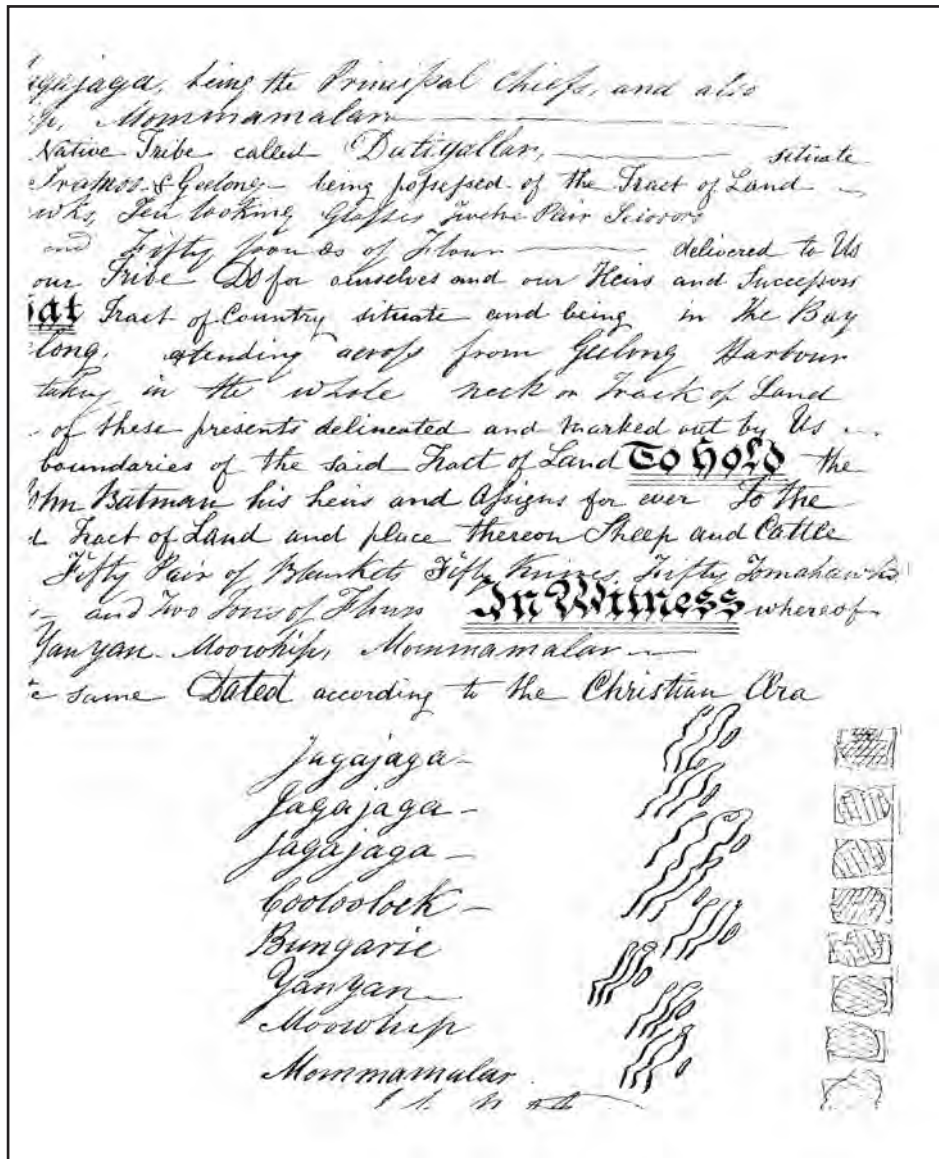 jaga, being the Principal Chiefs, and also
Mommamalar
Native Tribe called Dutigallar, situate
& Geelong being possessed of the Tract of Land
Ten looking Glasses Twelve Pair Scissors
and Fifty pounds of Flour delivered to Us
our Tribe Do for ourselves and our Heirs and Successors
Tract of Country situate and being in the Bay
long, extending across from Geelong Harbour
taking in the whole neck or Track of Land
of these presents delineated and marked out by Us
boundaries of the said Tract of Land To Hold the
John Batman his heirs and Assigns for ever To the
Tract of Land and place thereon Sheep and Cattle
Fifty Pair of Blankets Fifty Knives, Fifty Tomahawks
and Two Tons of Flour In Witness whereof
Yanyan Moowhip, Mommamalar
same Dated according to the Christian Æra
Jagajaga
Jagajaga
Jagajaga
Cooloolock
Bungarie
Yanyan
Moowhip
Mommamalar